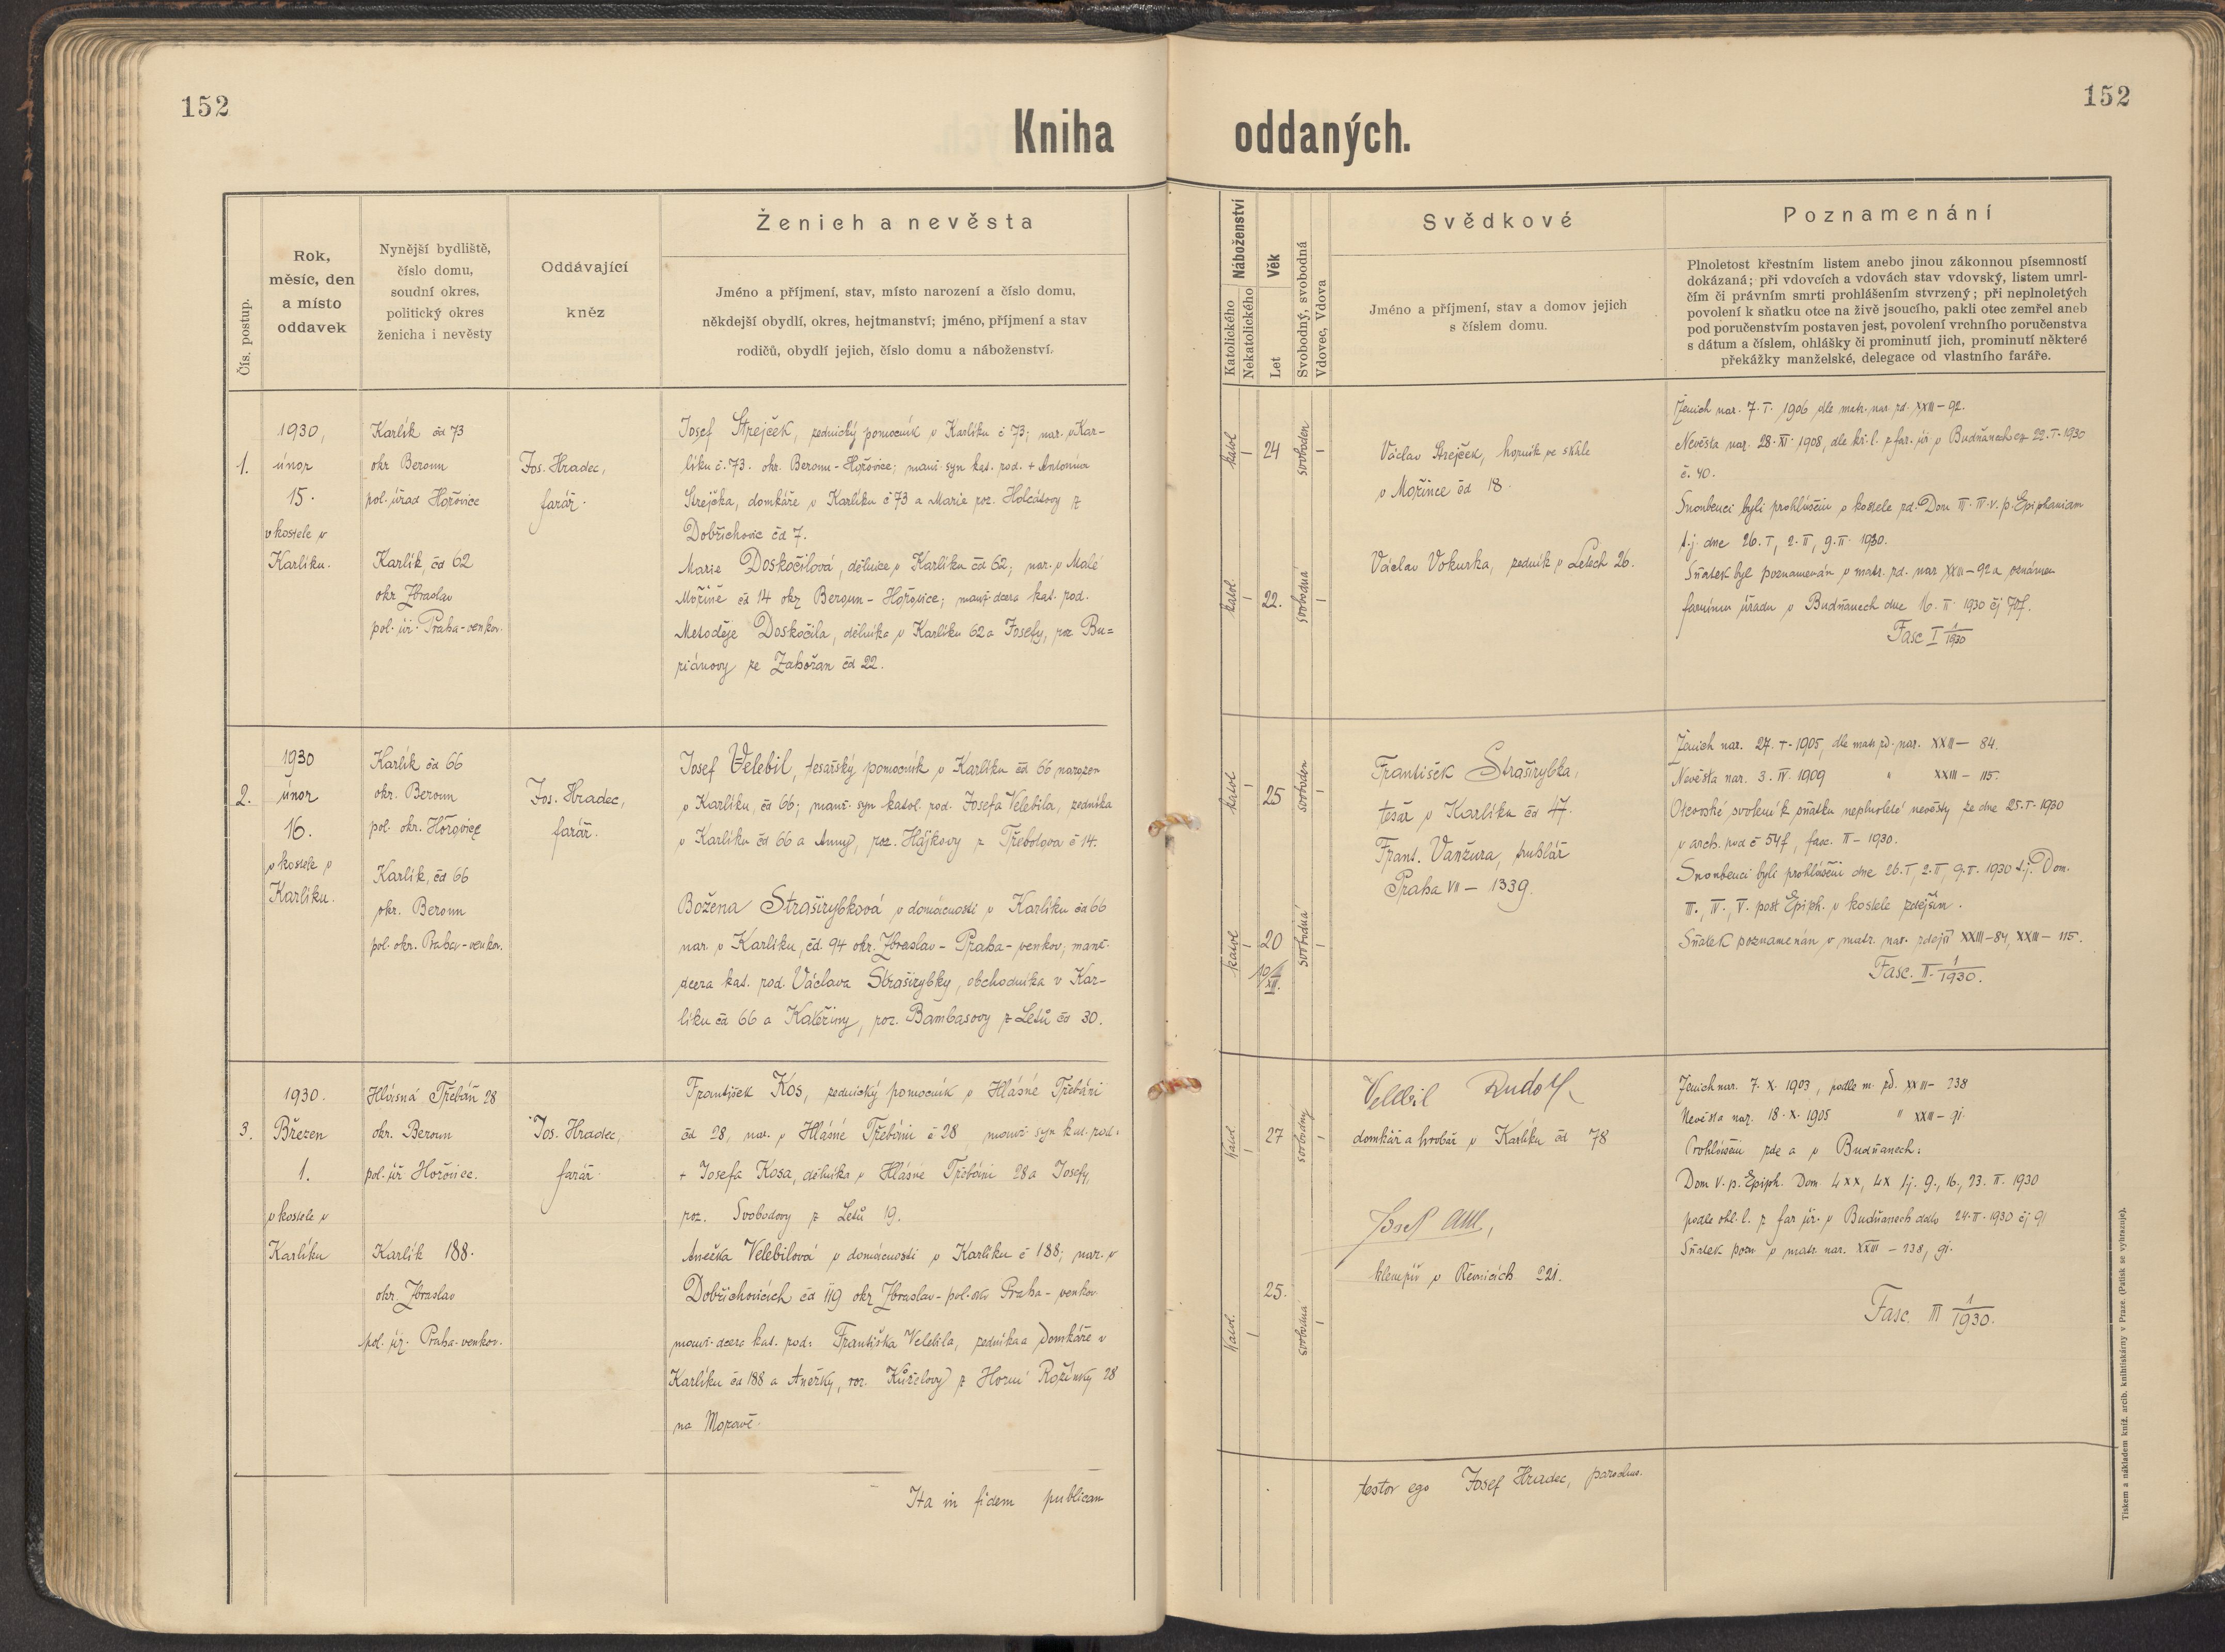 152
152
Kniha oddaných.
Čís. postup.
Rok,
měsíc, den
a místo
oddavek
Nynější bydliště,
číslo domu,
soudní okres,
politický okres
ženicha i nevěsty
Oddávající
kněz
Ženich a nevěsta
Jméno a příjmení, stav, místo narození a číslo domu,
někdejší obydlí, okres, hejtmanství; jméno, příjmení a stav
rodičů, obydlí jejich, číslo domu a náboženství.
Náboženství
Katolického
Nekatolického
Věk
Let
Svobodný, svobodná
Vdovec, Vdova
Svědkové
Jméno a příjmení, stav a domov jejich
s číslem domu.
Poznamenání
Plnoletost křestním listem anebo jinou zákonnou písemností
dokázaná; při vdovcích a vdovách stav vdovský, listem umrl-
čím či právním smrti prohlášením stvrzený; při neplnoletých
povolení k sňatku otce na živě jsoucího, pakli otec zemřel aneb
pod poručenstvím postaven jest, povolení vrchního poručenstva
s dátum a číslem, ohlášky či prominutí jich, prominutí některé
překážky manželské, delegace od vlastního faráře.
1.
1930,
únor
15.
v kostele v
Karlíku.
Karlík čd 73
okr Beroun
pol. úřad Hořovice
Karlík, čd 62
okr Zbraslav
pol. úř. Praha-venkov.
Jos. Hradec,
farář.
Josef Strejček, zednický pomocník v Karlíku č 73; nar. v Kar-
líku č. 73. okr. Beroun-Hořovice; manž. syn kat. rod. + Antonína
Strejčka, domkáře v Karlíku č 73 a Marie roz. Holcátovy z
Dobřichovic čd 7.
Marie Doskočilová, dělnice v Karlíku čd 62; nar. v Malé
Mořině čd 14 okr Beroun-Hořovice; manž. dcera kat. rod.
Metoděje Doskočila, dělníka v Karlíku 62 a Josefy, roz. Bu=
riánovy ze Zahořan čd 22.
katol
24
svoboden
katol.
22.
svobodná
Václav Strejček, horník ve skále
v Mořince čd 18.
Václav Vokurka, zedník v Letech 26.
Ženich nar. 7. I. 1906 dle matr. nar. zd. XXIII-92.
Nevěsta nar. 28. XI. 1908, dle kř. l. z far. úř. v Budňanech ez 22. I. 1930
č. 40.
Snoubenci byli prohlášeni v kostele zd. Dom III. IV. V. p. Epiphaniam
t.j. dne 26. I, 2. II, 9. II. 1930.
Sňatek byl poznamenán v matr. zd. nar XXIII-92 a oznámen
farnímu úřadu v Budňanech dne 16. II. 1930
Fasc I 1/1930
2.
1930
únor
16.
v kostele v
Karlíku.
Karlík čd 66
okr. Beroun
pol. okr. Hořovice
Karlík, čd 66
okr. Beroun
pol. okr. Praha-venkov.
Jos. Hradec,
farář.
Josef Velebil, tesařský pomocník v Karlíku čd 66 narozen
v Karlíku, čd 66; manž. syn katol. rod. Josefa Velebila, zedníka
v Karlíku čd 66 a Anny, roz. Hájkovy z Třebotova č 14.
Božena Straširybková v domácnosti v Karlíku čd 66
nar. v Karlíku, čd. 94 okr. Zbraslav-Praha-venkov; manž.
dcera kat. rod. Václava Straširybky, obchodníka v Kar-
líku čd 66 a Kateřiny, roz. Bambasovy z Letů čd 30.
katol
25
svoboden
katol
20
svobodná
František Straširybka,
tesař v Karlíku čd 47.
Frant. Vanžura, truhlář
Praha VII - 1339.
Ženich nar. 27. I. 1905, dle matr. zd. nar. XXIII- 84.
Nevěsta nar. 3. IV. 1909 " XXIII - 115.
Otcovské svolení k sňatku neplnoleté nevěsty ze dne 25. I. 1930
v arch. pod č 54f, fasc. II-1930.
Snoubenci byli prohlášeni dne 26. I, 2. II, 9. II. 1930 t.j. Dom.
III., IV., V. post Epiph. v kostele zdejším.
Sňatek poznamenán v matr. nar. zdejší XXIII-84, XXIII-115.
Fasc. II. 1/1930.
3.
1930.
Březen
1.
v kostele v
Karlíku
Hlásná Třebáň 28
okr. Beroun
pol. úř Hořovice.
Karlík 188.
okr. Zbraslav
pol. úř. Praha-venkov.
Jos. Hradec,
farář.
František Kos, zednický pomocník v Hlásné Třebáni
čd 28, nar. v Hlásné Třebáni č 28 manž. syn kat. rod.
+ Josefa Kosa, dělníka v Hlásné Třebáni 28 a Josefy,
roz. Svobodovy z Letů 19.
Anežka Velebilová v domácnosti v Karlíku č 188; nar. v
Dobřichovicích čd 119 okr Zbraslav-pol. okr Praha-venkov
manž. dcera kat. rod. Františka Velebila, zedníka a domkáře v
Karlíku čd 188 a Anežky, roz. Kuželovy z Horní Rožínky 28
na Moravě.
katol.
27
svobodný
katol.
25.
svobodná
Velebil Rudolf
domkář a hrobař v Karlíku čd 78
Josef
klempíř v Řevnicích 221.
Ženich nar. 7. X. 1903, podle m. zd. XXIII- 238
Nevěsta nar. 18. X. 1905 " XXIII- 91.
Prohlášeni zde a v Budňanech:
Dom V. p. Epiph. Dom. LXX, LX t.j. 9., 16., 23. II. 1930
podle ohl. l. z far úř. v Budňanech ddto 24. II. 1930 čj 91
Sňatek pozn v matr. nar. XXIII - 238, 91.
Fasc. III 1/1930.
Ita in fidem publicam
testor ego Josef Hradec, parochus.
Tiskem a nákladem kníž. arcib. knihtiskárny v Praze. (Patisk se vyhrazuje).